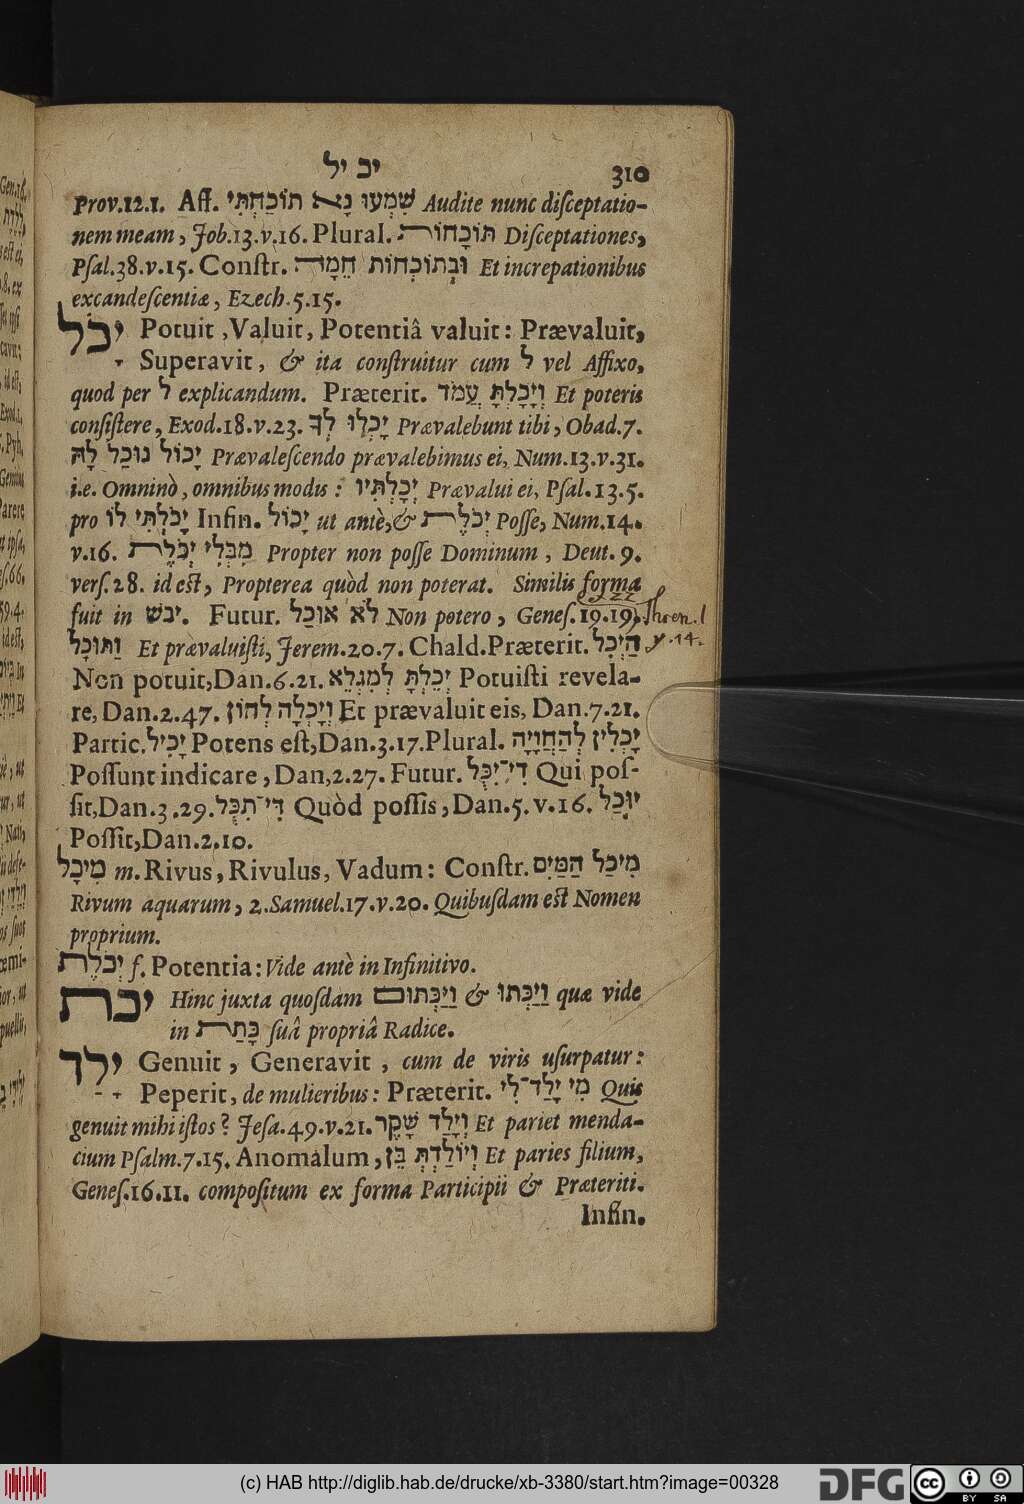 יכ יל 310
Prov.12.1. Aff. שִׁמְעוּ נָא תוֹכַחְתִּי Audite nunc disceptatio-
nem meam, Job.13.v.16. Plural. תּוֹכָחוֹת Disceptationes,
Psal.38.v.15. Constr. וּבְתוֹכְחוֹת חֵמָה Et increpationibus
excandescentiæ, Ezech.5.15.
יָכֹל Potuit, Valuit, Potentiâ valuit: Prævaluit,
Superavit, & ita construitur cum ל vel Affixo,
quod per ל explicandum. Præterit. וְיָכָלְתָּ עֲמֹד Et poteris
consistere, Exod.18.v.23. יָכְלוּ לְךָ Prævalebunt tibi, Obad.7.
יָכוֹל נוּכַל לָהּ Prævalescendo prævalebimus ei, Num.13.v.31.
i.e. Omninò, omnibus modis: יְכָלְתִּיו Prævalui ei, Psal.13.5.
pro יָכֹלְתִּי לוֹ Infin. יָכוֹל ut antè, & יְכֹלֶת Posse, Num.14.
v.16. מִבְּלִי יְכֹלֶת Propter non posse Dominum, Deut.9.
vers.28. id est, Propterea quòd non poterat. Similis forma
fuit in יבשׁ. Futur. לֹא אוּכַל Non potero, Genes.19.19. Thren.1
וַתּוּכָל Et prævaluisti, Jerem.20.7. Chald.Præterit. הַיְכִל v.14.
Non potuit, Dan.6.21. יְכֵלְתָּ לְמִגְלֵא Potuisti revela-
re, Dan.2.47. וְיָכְלָה לְהוֹן Et prævaluit eis, Dan.7.21.
Partic. יָכִיל Potens est, Dan.3.17. Plural. יָכְלִין לְהַחֲוָיָה
Possunt indicare, Dan,2.27. Futur. דִּי־יִכֻּל Qui pos-
sit, Dan.3.29. דִּי־תִכֻּל Quòd possis, Dan.5.v.16. יוּכַל
Possit, Dan.2.10.
מִיכָל m. Rivus, Rivulus, Vadum: Constr. מִיכַל הַמַּיִם
Rivum aquarum, 2.Samuel.17.v.20. Quibusdam est Nomen
proprium.
יְכֹלֶת f. Potentia: Vide antè in Infinitivo.
יכת Hinc juxta quosdam וַיַּכְּתוּם & וַיַּכְּתוּ quæ vide
in כָּתַת suâ propriâ Radice.
יָלַד Genuit, Generavit, cum de viris usurpatur:
Peperit, de mulieribus: Præterit. מִי יָלַד־לִי Quis
genuit mihi istos? Jesa.49.v.21. וְיָלַד שָׁקֶר Et pariet menda-
cium Psalm.7.15. Anomalum, וְיוֹלַדְתְּ בֵּן Et paries filium,
Genes.16.11. compositum ex forma Participii & Præteriti.
Infin.
(c) HAB http://diglib.hab.de/drucke/xb-3380/start.htm?image=00328
DFG
cc BY SA